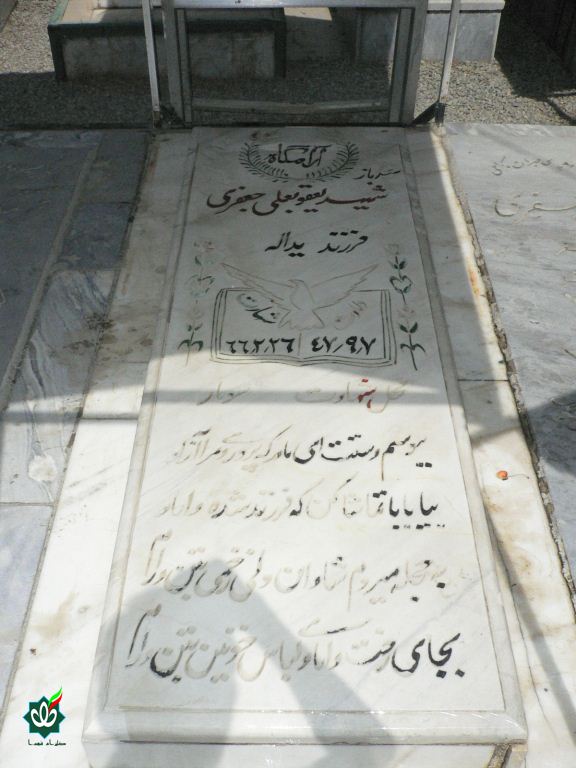 آرامگاه
سرباز
شهید یعقوبعلی جعفری
فرزند یداله
شهادت
۶۶،۲،۲۶ ۴۷،۹،۷
محل شهادت
ببوسم دستت ای مادر که پروردی مرا آزاد
بیا بابا تماشا کن که فرزندت شده داماد
به حجله میروم شادان ولی زخمی بتن دارم
بجای رخت دامادی لباس خونین بتن دارم